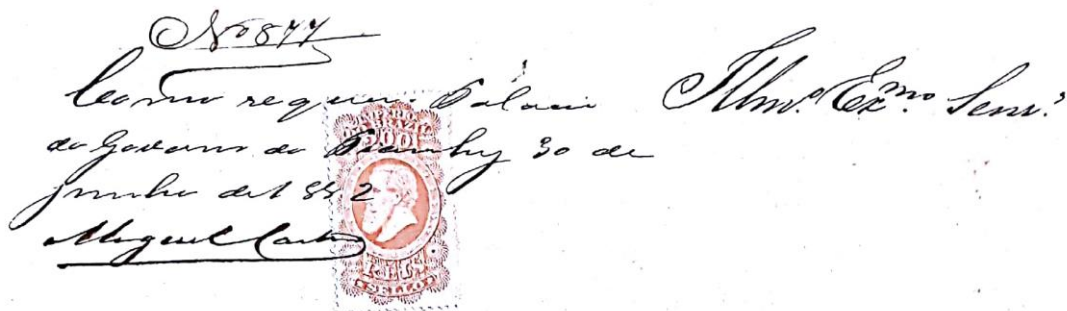 Nº 877
Como requer. Palacio
do Governo do Piauhy 30 de
junho de 1882
Miguel Castro
Illmo. Exmo. Senr.
200
REIS
SELLO